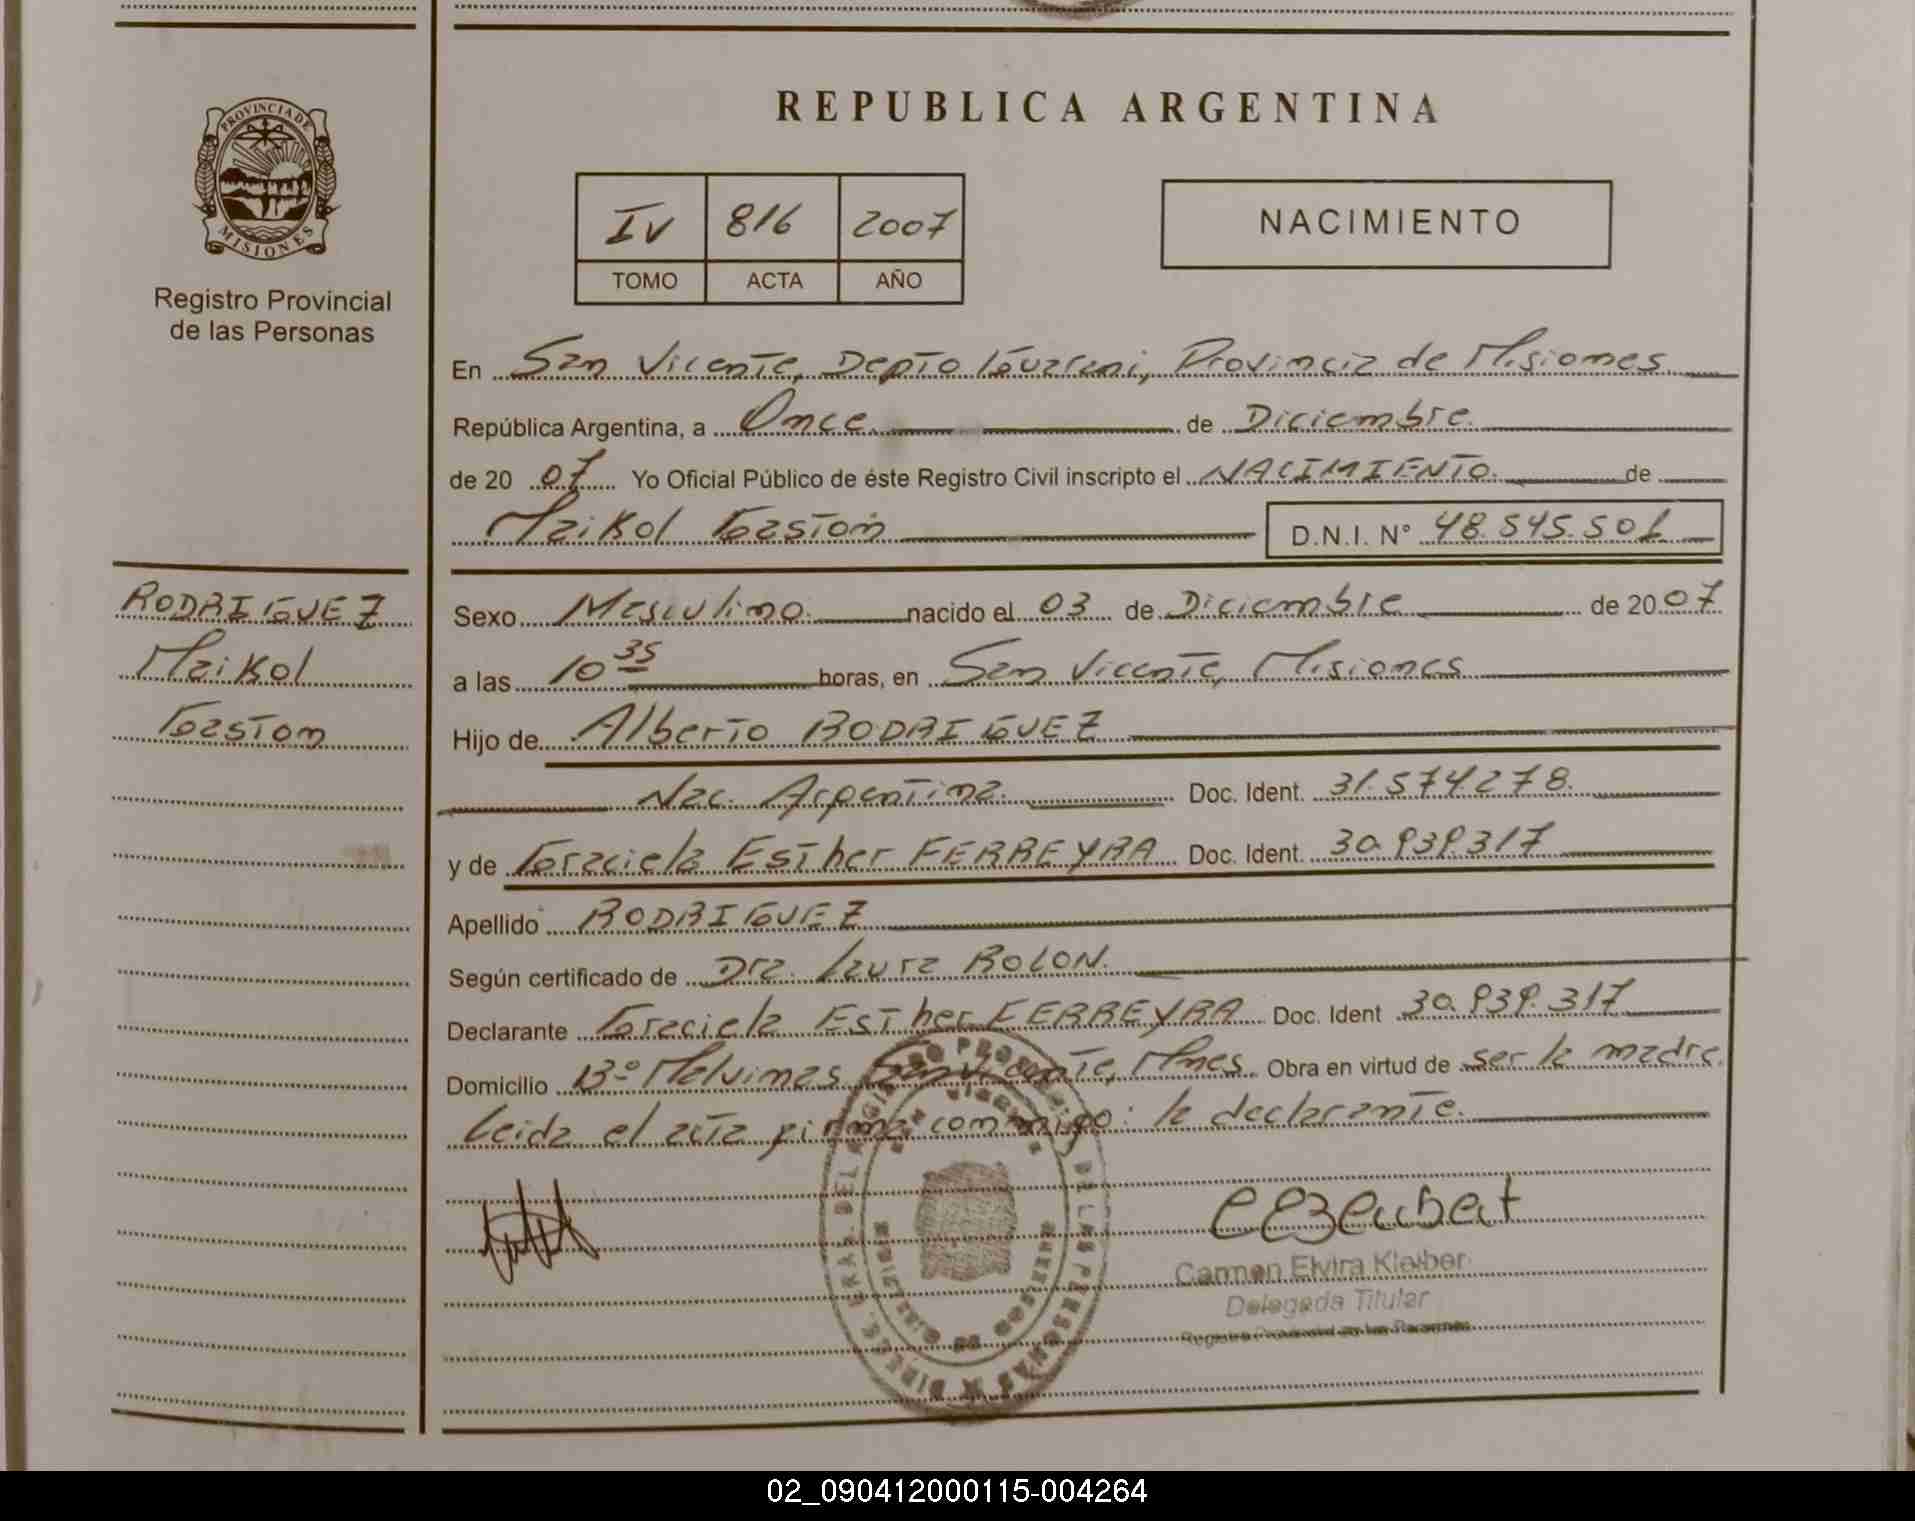 PROVINCIA DE
MISIONES
Registro Provincial
de las Personas
REPUBLICA ARGENTINA
IV 816 2007
TOMO ACTA AÑO
NACIMIENTO
En San Vicente, Depto Guarani, Provincia de Misiones.
República Argentina, a Once. de Diciembre.
de 2007 Yo Oficial Público de éste Registro Civil inscripto el NACIMIENTO. de
Maikol Gaston D.N.I. N° 48.545.501
RODRIGUEZ
Maikol
Gaston
Sexo Masculino. nacido el 03 de Diciembre de 2007
a las 10 35 horas, en San Vicente, Misiones
Hijo de Alberto RODRIGUEZ
Nac. Argentina. Doc. Ident. 31.574.278.
y de Graciela Esther FERREYRA Doc. Ident. 30.939.317
Apellido RODRIGUEZ
Según certificado de Dra. Laura ROLON.
Declarante Graciela Esther FERREYRA Doc. Ident 30.939.317
Domicilio B° Malvinas San Vicente, Mnes. Obra en virtud de ser la madre.
Leida el acta firma conmigo: la declarante.
Carmen Elvira Kleiber
Delegada Titular
Registro Provincial de las Personas
02_090412000115-004264